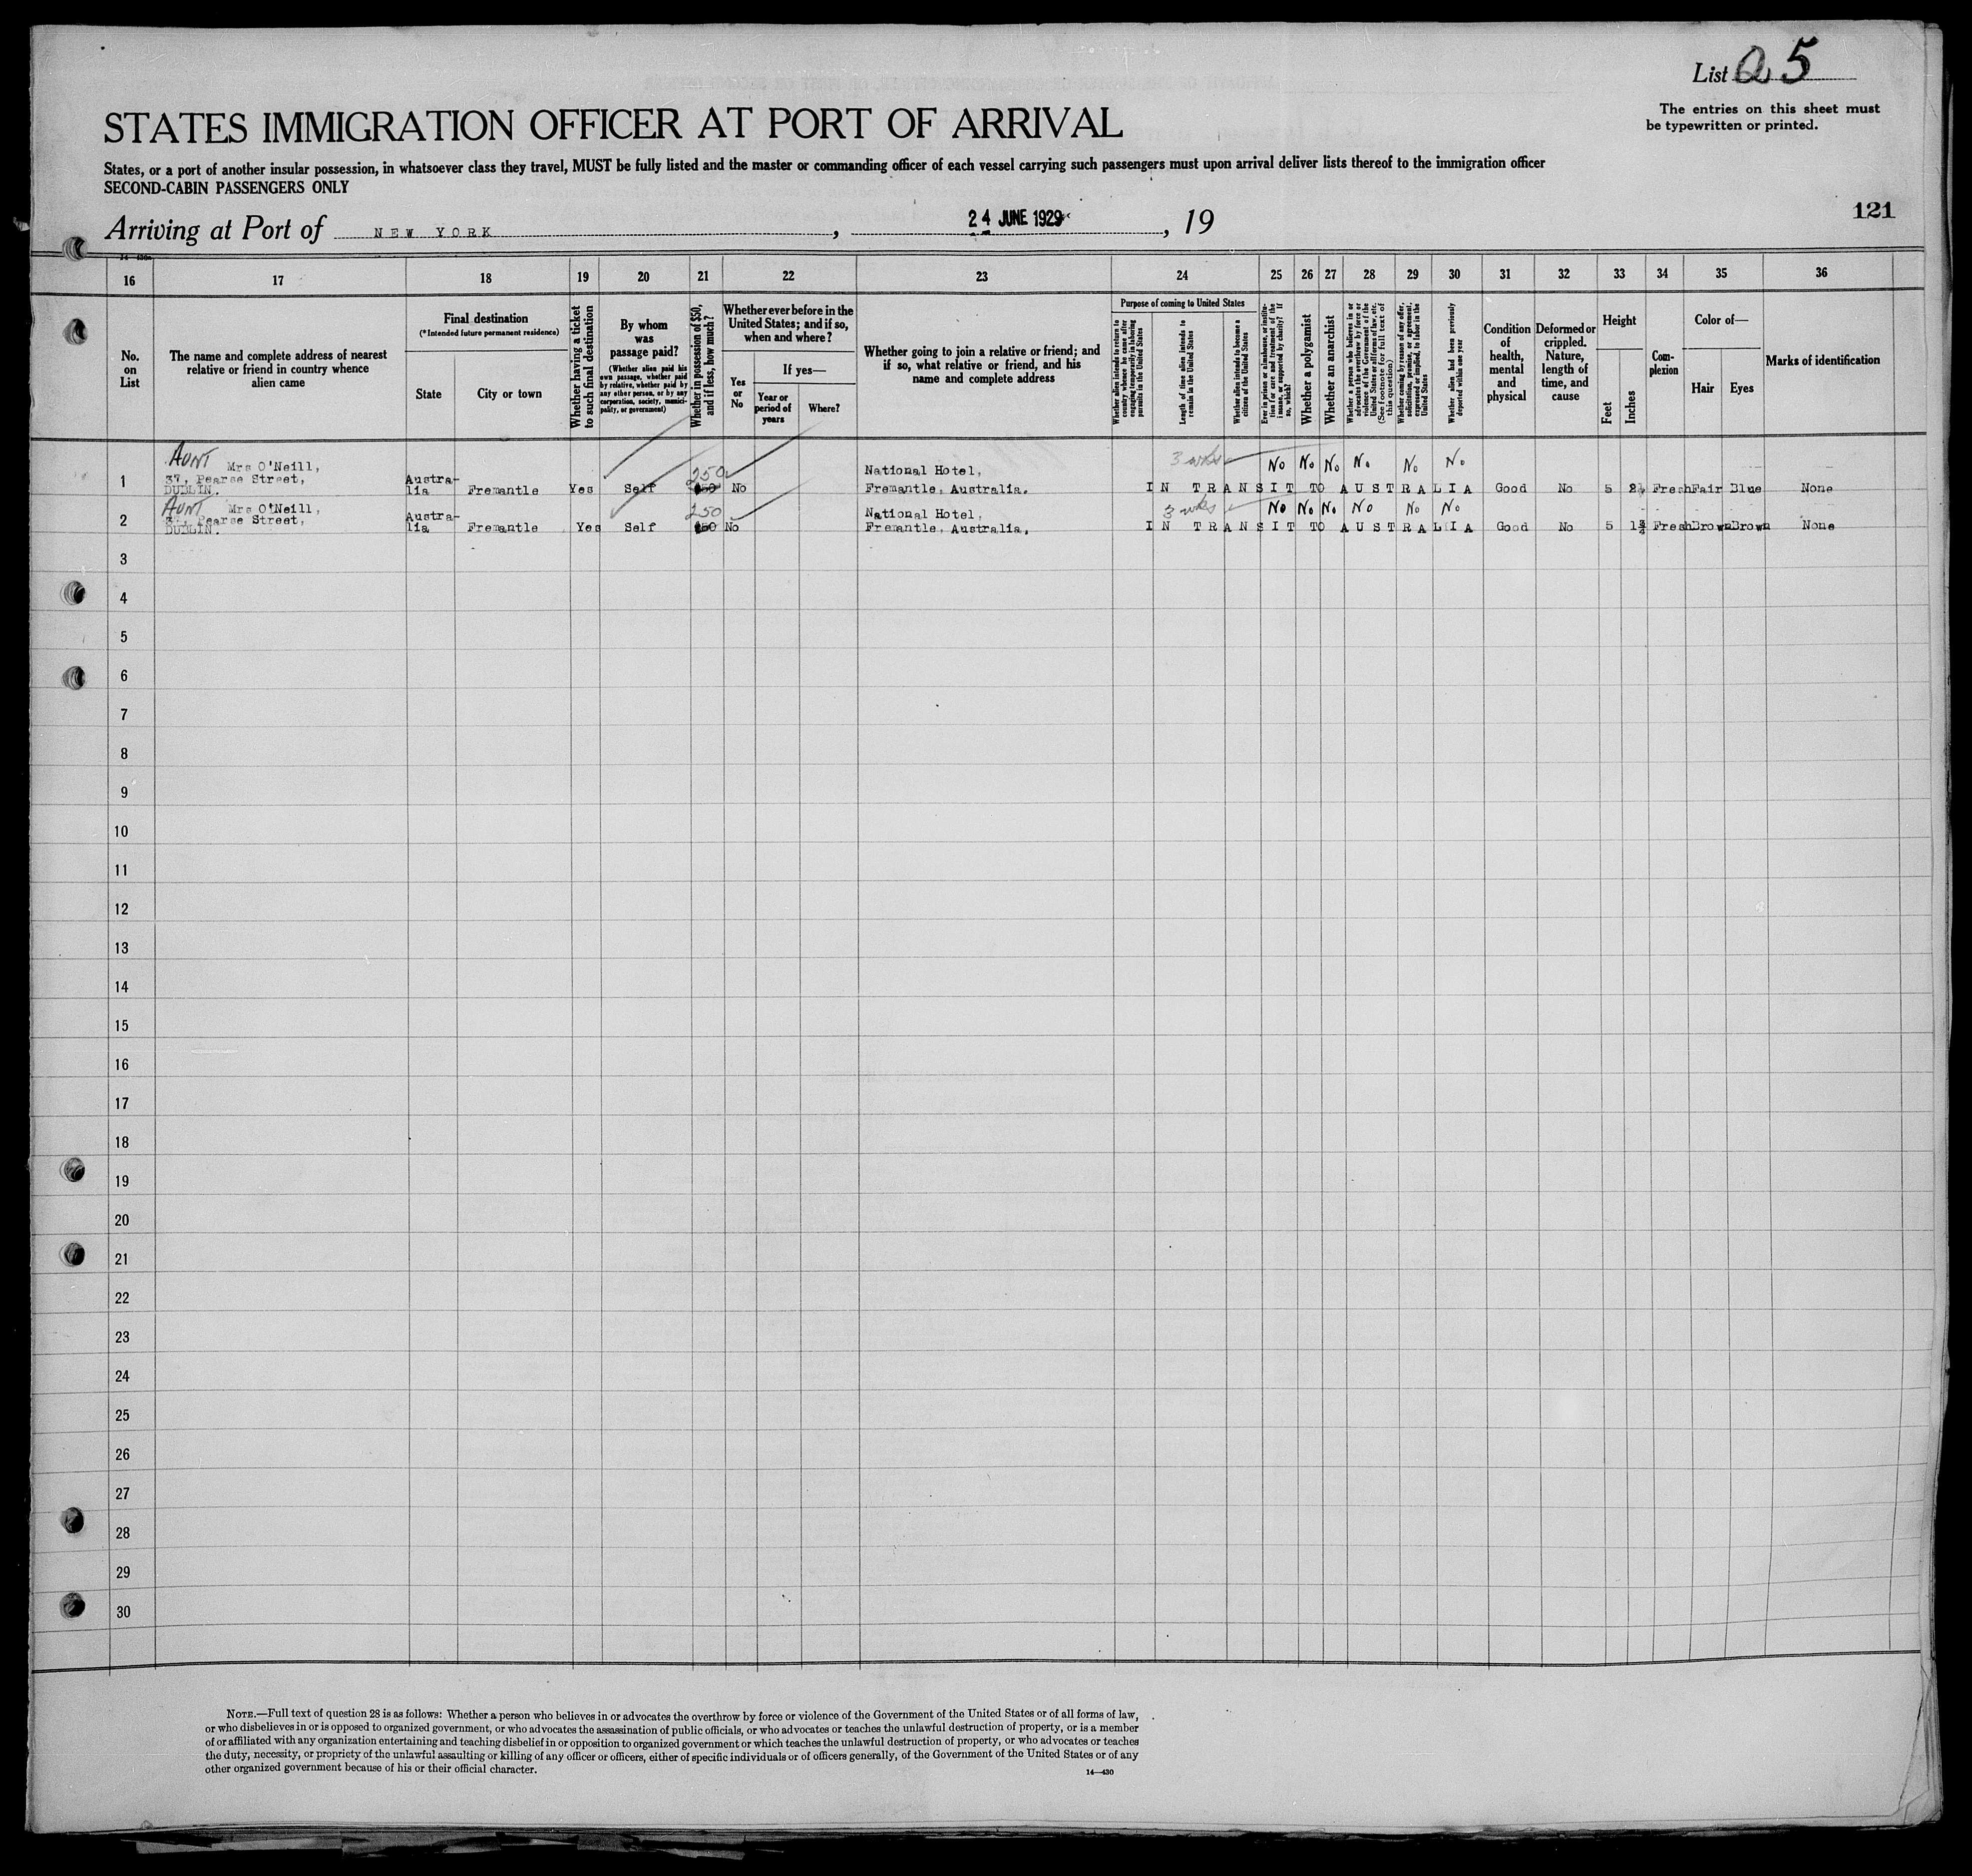 List 25
The entries on this sheet must
be typewritten or printed.
STATES IMMIGRATION OFFICER AT PORT OF ARRIVAL
States, or a port of another insular possession, in whatsoever class they travel, MUST be fully listed and the master or commanding officer of each vessel carrying such passengers must upon arrival deliver lists thereof to the immigration officer
SECOND-CABIN PASSENGERS ONLY
121
Arriving at Port of NEW YORK, 24 JUNE 1929, 19
16 17 18 19 20 21 22 23 24 25 26 27 28 29 30 31 32 33 34 35 36
No.
on
List
The name and complete address of nearest
relative or friend in country whence
alien came
Final destination
(*Intended future permanent residence)
State
City or town
Whether having a ticket
to such final destination
By whom
was
passage paid?
(Whether alien paid his
own passage, whether paid
by relative, whether paid by
any other person, or by any
corporation, society, munici-
pality, or government)
Whether in possession of $50,
and if less, how much?
Whether ever before in the
United States; and if so,
when and where?
Yes
or
No
If yes—
Year or
period of
years
Where?
Whether going to join a relative or friend; and
if so, what relative or friend, and his
name and complete address
Purpose of coming to United States
Whether alien intends to return to
country whence he came after
engaging temporarily in laboring
pursuits in the United States
Length of time alien intends to
remain in the United States
Whether alien intends to become a
citizen of the United States
Ever in prison or almshouse, or institu-
tion for care and treatment of the
insane, or supported by charity? If
so, which?
Whether a polygamist
Whether an anarchist
Whether a person who believes in or
advocates the overthrow by force or
violence of the Government of the
United States or all forms of law, etc.
(See footnote for full text of
this question)
Whether coming by reason of any offer,
solicitation, promise, or agreement,
expressed or implied, to labor in the
United States
Whether alien had been previously
deported within one year
Condition
of
health,
mental
and
physical
Deformed or
crippled.
Nature,
length of
time, and
cause
Height
Feet
Inches
Com-
plexion
Color of—
Hair
Eyes
Marks of identification
AUNT Mrs O'Neill, 250 National Hotel, 3 wks No No No No No No
37, Pearse Street, Austra-
1 DUBLIN. lia Fremantle Yes Self No Fremantle, Australia. IN TRANSIT TO AUSTRALIA Good No 5 Fresh Fair Blue None
AUNT Mrs O'Neill, 250 National Hotel, 3 wks No No No No No No
37, Pearse Street, Austra-
2 DUBLIN. lia Fremantle Yes Self No Fremantle, Australia. IN TRANSIT TO AUSTRALIA Good No 5 1¾ Fresh Brown Brown None
3
4
5
6
7
8
9
10
11
12
13
14
15
16
17
18
19
20
21
22
23
24
25
26
27
28
29
30
NOTE.—Full text of question 28 is as follows: Whether a person who believes in or advocates the overthrow by force or violence of the Government of the United States or of all forms of law,
or who disbelieves in or is opposed to organized government, or who advocates the assassination of public officials, or who advocates or teaches the unlawful destruction of property, or is a member
of or affiliated with any organization entertaining and teaching disbelief in or opposition to organized government or which teaches the unlawful destruction of property, or who advocates or teaches
the duty, necessity, or propriety of the unlawful assaulting or killing of any officer or officers, either of specific individuals or of officers generally, of the Government of the United States or of any
other organized government because of his or their official character.
14—430